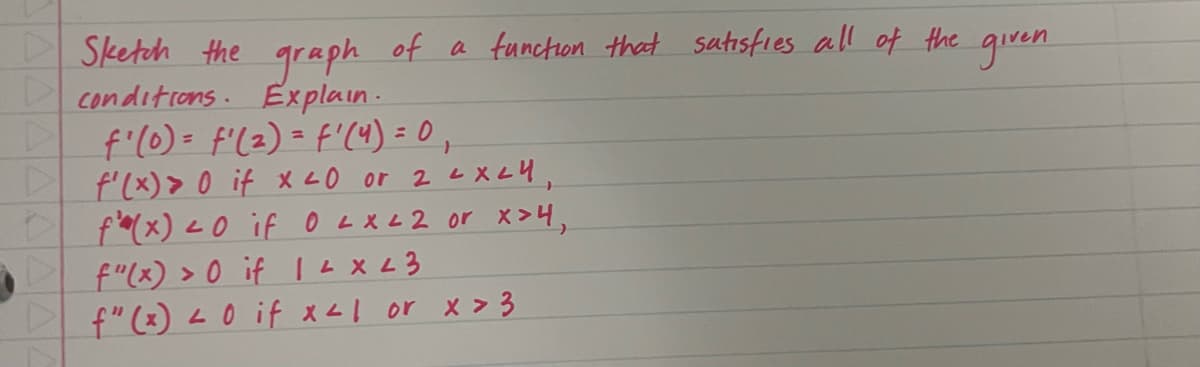 Sketch the graph of a function that satisfies all of the given
conditions. Explain.
f'(0) = f'(2) = f'(4) = 0,
f'(x) > 0 if x < 0 or 2 < x < 4,
f'(x) < 0 if 0 < x < 2 or x > 4,
f"(x) > 0 if 1 < x < 3
f"(x) < 0 if x < 1 or x > 3